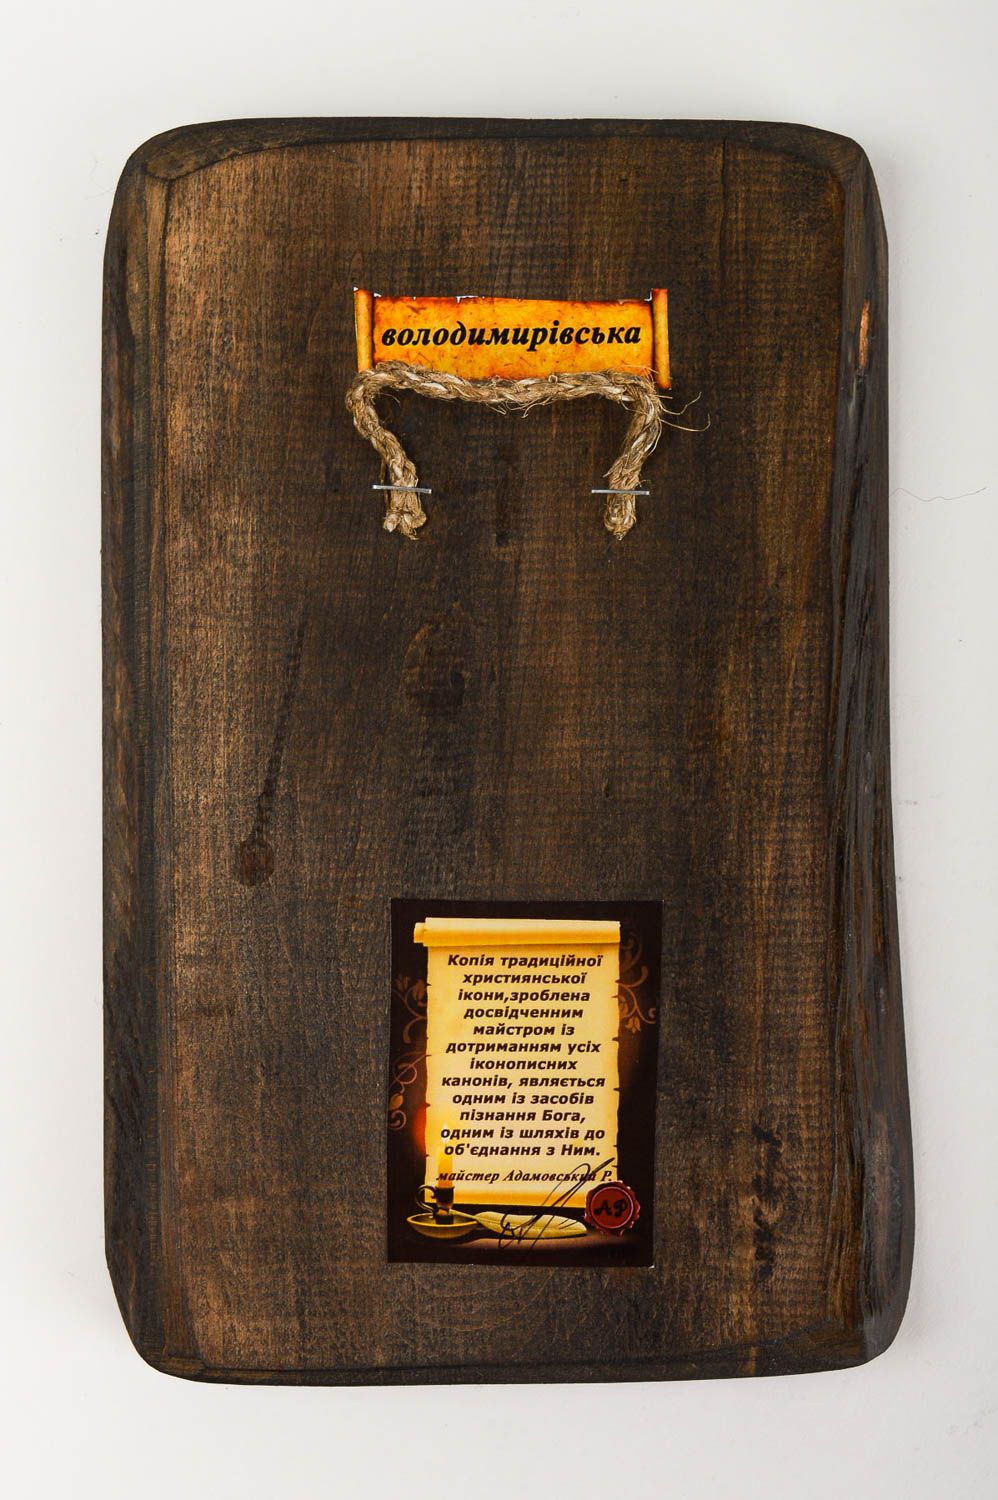 володимирівська
Копія традиційної
християнської
ікони,зроблена
досвідченним
майстром із
дотриманням усіх
іконописних
канонів, являється
одним із засобів
пізнання Бога,
одним із шляхів до
об'єднання з Ним.
майстер Адамовський Р.
АР